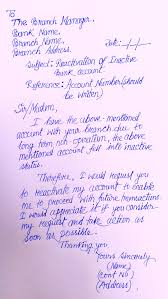 To
The Branch Manager,
Bank Name,
Branch Name,
Branch Address.
Date: -/-/-
Subject: Reactivation of Inactive
Bank account
Reference: Account Number (should
be written)
Sir/Madam,
I have the above-mentioned
account with your branch due to
long term non-operation, the above
mentioned account fell into inactive
status.
Therefore, I would request you
to reactivate my account to enable
me to proceed with future transactions.
I would appreciate it if you consider
my request and take action as
soon as possible.
Thanking you,
Yours Sincerely
(Name)
(Cont No.)
(Address)